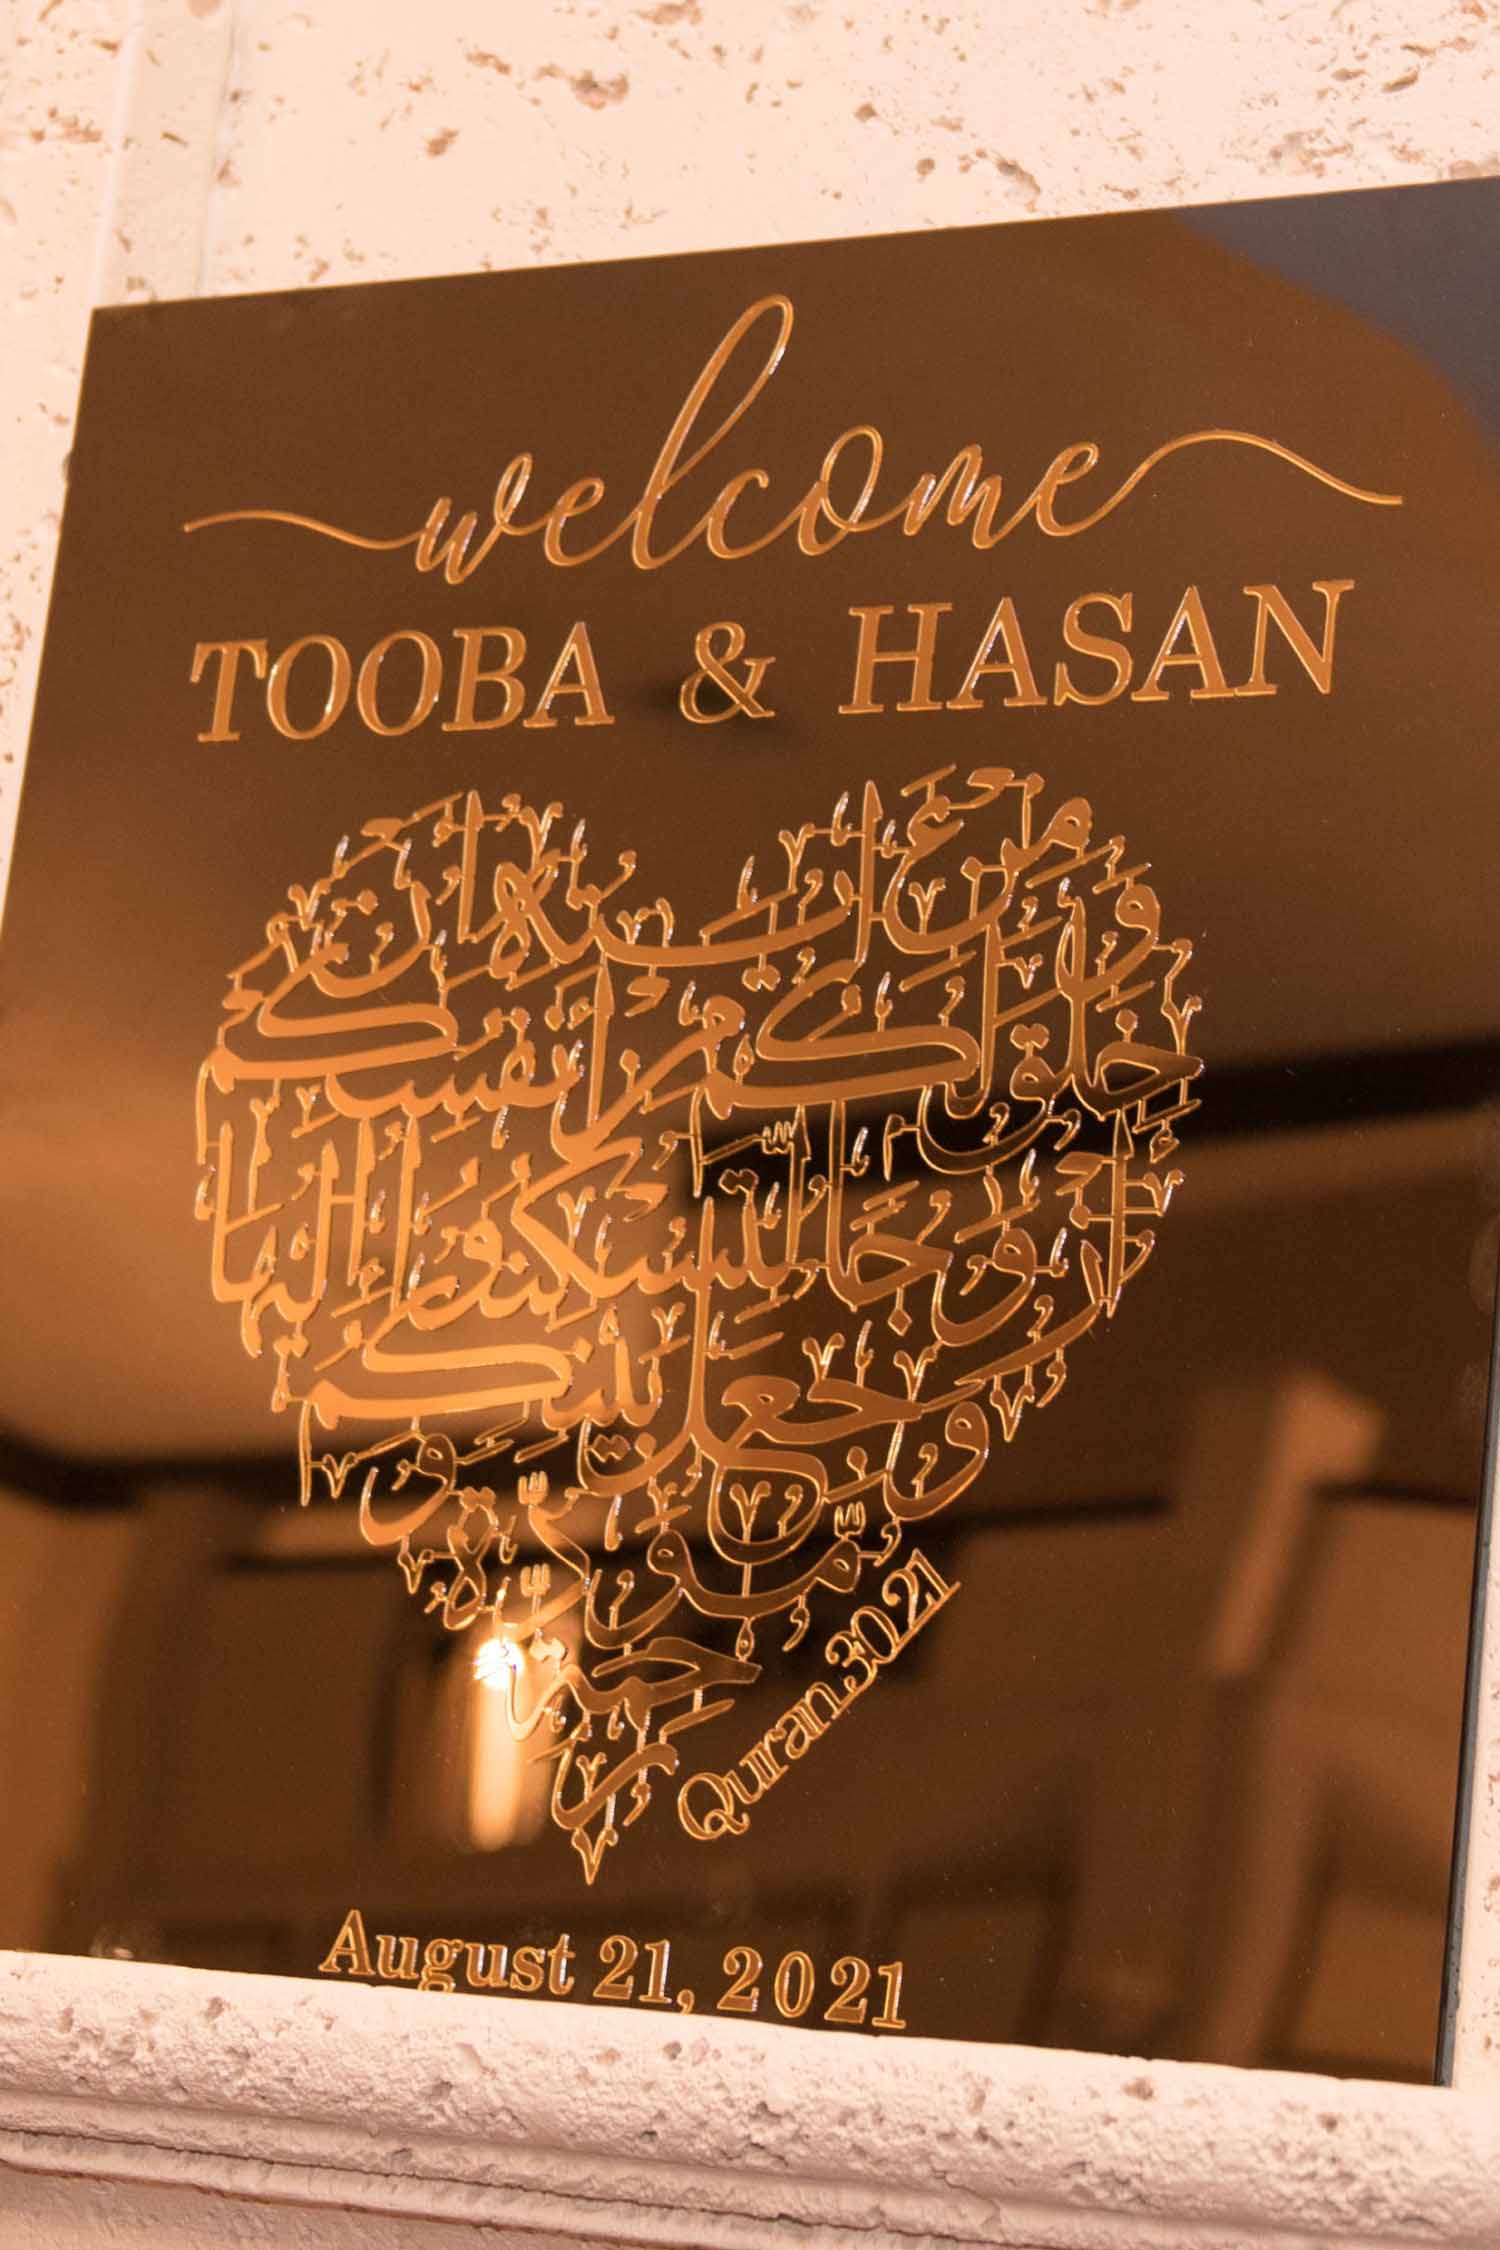 welcome
TOOBA & HASAN
وَمِنْ ءَايَٰتِهِ أَنْ
خَلَقَ لَكُم مِّنْ أَنْفُسِكُمْ
أَزْوَٰجًا لِّتَسْكُنُوا إِلَيْهَا
وَجَعَلَ بَيْنَكُم
مَّوَدَّةً وَ
رَحْمَةً
Quran 30.21
August 21, 2021